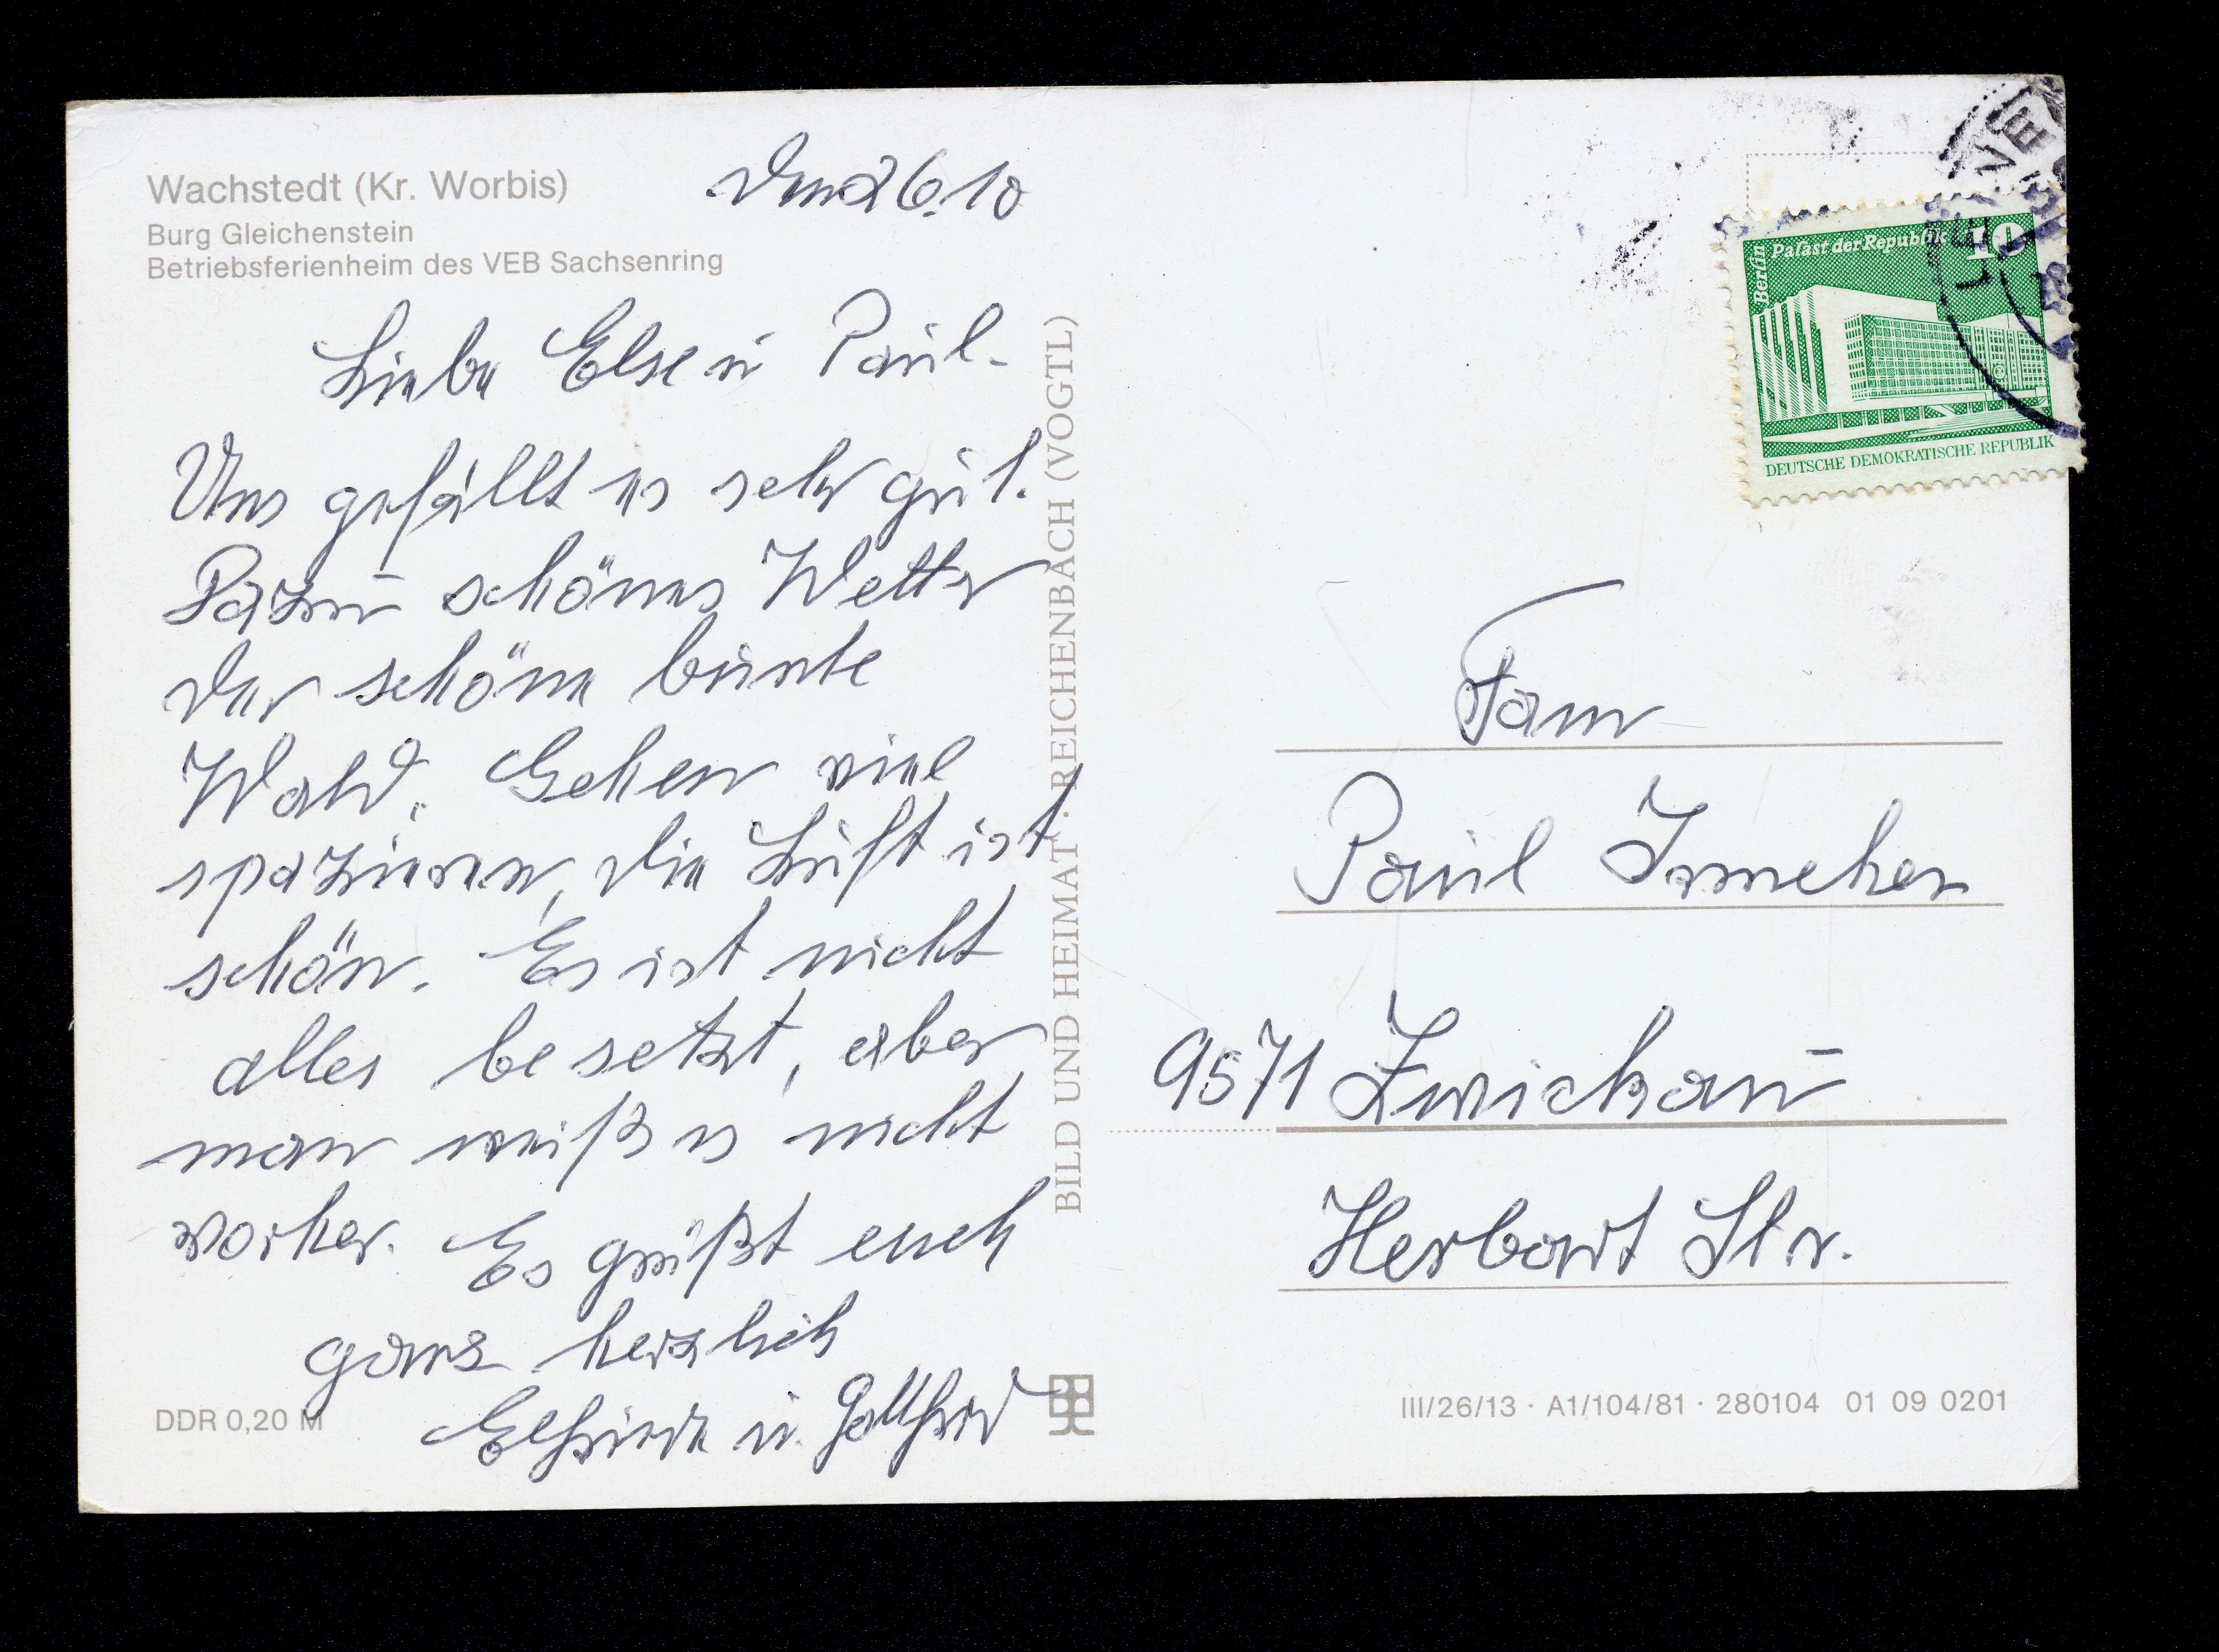 Wachstedt (Kr. Worbis)
Burg Gleichenstein
Betriebsferienheim des VEB Sachsenring
den 26.10
Liebe Else u Paul.
Uns gefällt es sehr gut.
Dazu schönes Wetter
der schöne bunte
Wald. Gehen viel
spazieren, die Luft ist
schön. Es ist nicht
alles besetzt, aber
man weiß es nicht
vorher. Es grüßt euch
ganz herzlich
Elfriede u. Gottfried
DDR 0,20 M
BILD UND HEIMAT · REICHENBACH (VOGTL)
Berlin
Palast der Republik
10
DEUTSCHE DEMOKRATISCHE REPUBLIK
Fam
Paul Irmscher
9571 Zwickau
Herbart Str.
III/26/13 · A1/104/81 · 280104 01 09 0201